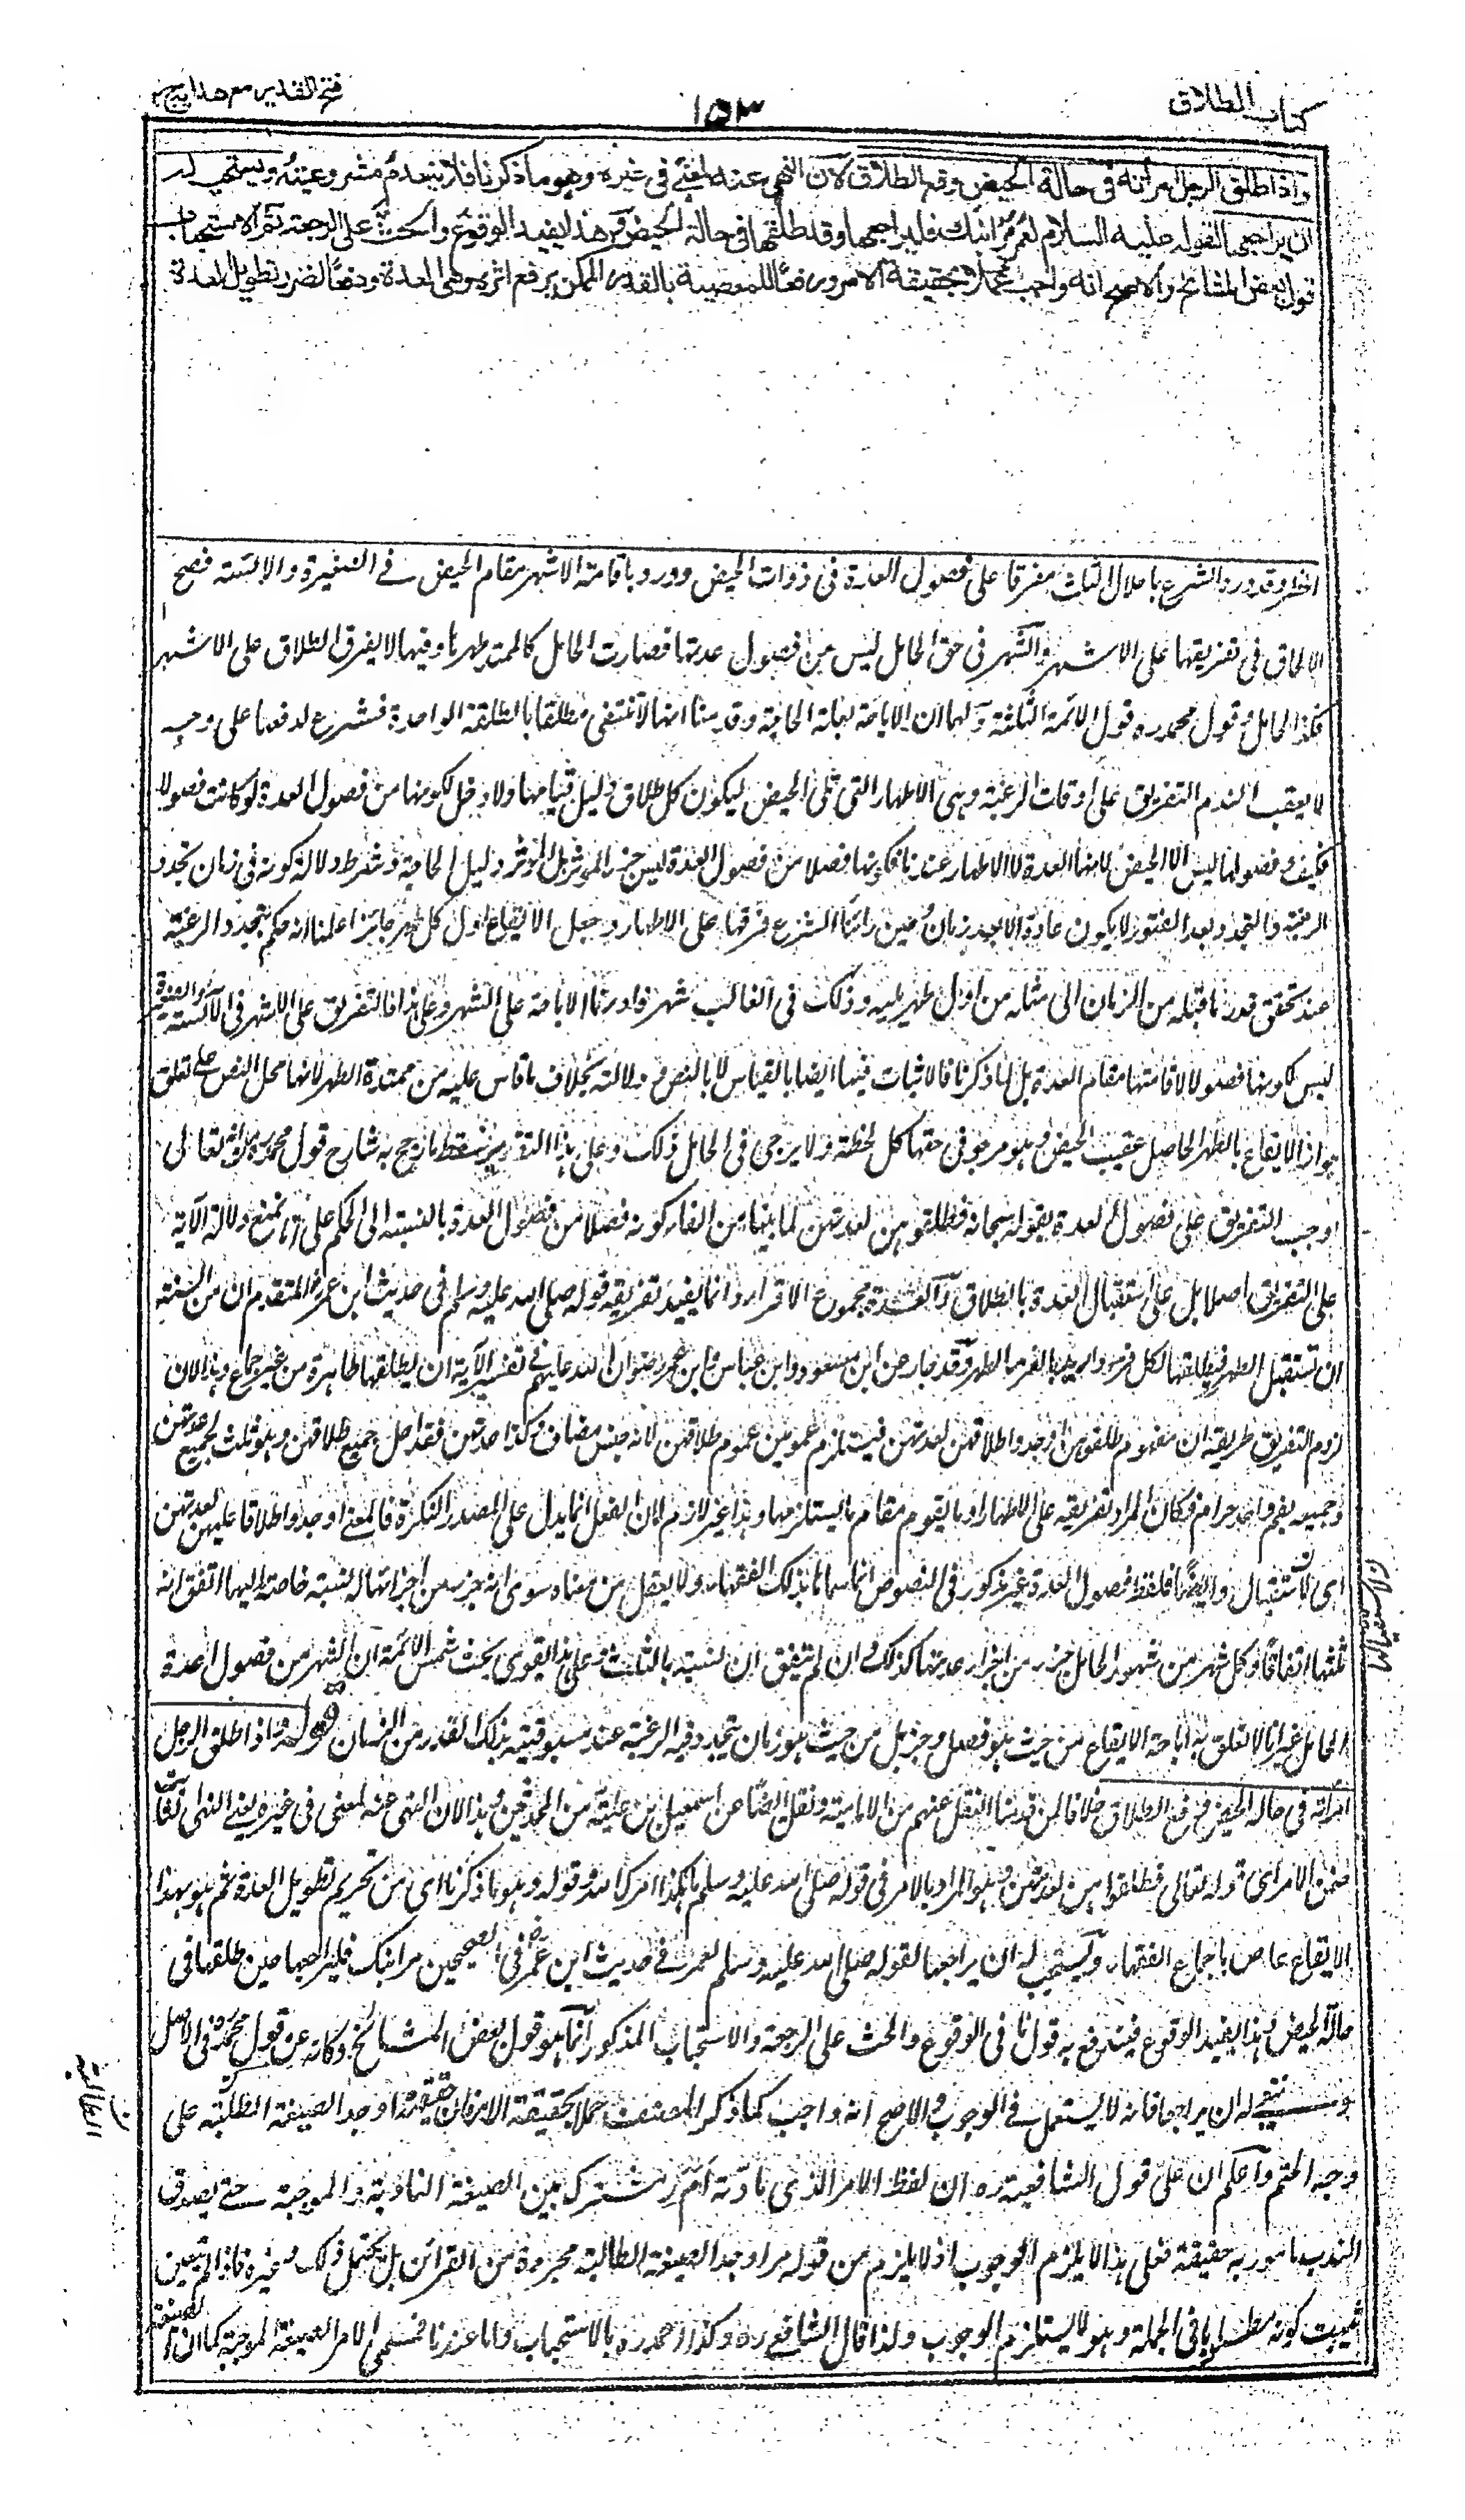 كتاب الطلاق
١٥٣
فتح القدير مع هدايه ج ٣
واذا طلق الرجل امرأته فى حالة الحيض وقع الطلاق لان النهى عنه لمعنى فى غيره وهو ما ذكرنا فلا ينعدم مشروعيته ويستحب له
ان يراجعها لقوله عليه السلام لعمر مر ابنك فليراجعها وقد طلقها فى حالة الحيض وهذا يفيد الوقوع والحث على الرجعة ثم الاستحباب
قول بعض المشائخ والاصح انه واجب عملا بحقيقة الامر ورفعا للمعصية بالقدر الممكن برفع اثره وهى العدة ودفعا لضرر تطويل العدة
الحظر وقد ورد الشرع باحلال الثلث مفرقا على فصول العدة فى ذوات الحيض وورد باقامة الاشهر مقام الحيض فى الصغيرة والائسة فصح
الالحاق فى تفريقها على الاشهر والشهر فى حق الحامل ليس من فصول عدتها فصارت الحامل كالممتد طهرها وفيها لا يفرق الطلاق على الاشهر
فكذا الحامل وقول محمد ره قول الائمة الثلثة ولهما ان الاباحة لعلة الحاجة وقدمنا انها لا تنتفى مطلقا بالطلقة الواحدة فشرع لدفعها على وجه
لا يعقب الندم التفريق على اوقات الرغبة وهى الاطهار التى تلى الحيض ليكون كل طلاق دليل قيامها ولا دخل لكونها من فصول العدة لو كانت فصولا
فكيف وفصولها ليس الا الحيض لانها العدة لا الاطهار عندنا فكونها فصلا من فصول العدة ليس جزء المؤثر بل المؤثر دليل الحاجة وشرط دلالة كونه فى زمان تجدد
الرغبة والتجدد بعد الفتور لا يكون عادة الا بعد زمان فحين رأينا الشرع فرقها على الاطهار وجعل الايقاع اول كل طهر جائزا علمنا انه حكم بتجدد الرغبة
عند تحقق قدر ما قبله من الزمان الى مثله من اول طهر يليه وذلك فى الغالب شهر فادرنا الاباحة على الشهر وعلى هذا فالتفريق على الاشهر فى الائسة والصغيرة
ليس لكونها فصولا لاقامتها مقام العدة بل لما ذكرنا فالاثبات فيها ايضا بالقياس لا بالنص و دلالته بخلاف ما قاس عليه من ممتدة الطهر لانها محل النص على تعلق
جواز الايقاع بالطهر الحاصل عقيب الحيض وهو مرجو فى حقها كل لحظة ولا يرجى فى الحامل ذلك وعلى هذا التقرير سقط ما رجح به شارح قول محمد ره بانه تعالى
اوجب التفريق على فصول العدة بقوله سبحانه فطلقوهن لعدتهن لما بينا من الغاء كونه فصلا من فصول العدة بالنسبة الى الحكم على انا نمنع دلالة الآية
على التفريق اصلا بل على استقبال العدة بالطلاق والعدة مجموع الاقراء وانما يفيد تفريقه قوله صلى الله عليه وسلم فى حديث ابن عمر المتقدم ان من السنة
ان تستقبل الطهر فيطلقها لكل قرء والمراد بالقرء الطهر وقد جاء عن ابن مسعود وابن عباس وابن عمر رضوان الله عليهم فى تفسير الآية ان يطلقها طاهرة من غير جماع وهذا لان
لزوم التفريق طريقه ان مفهوم طلقوهن اوجدوا طلاقهن لعدتهن فيستلزم عمومين عموم طلاقهن لانه جنس مضاف وكذا عدتهن فقد احل جميع طلاقهن وهو ثلث لجميع عدتهن
وجميعه بفم واحد حرام فكان المراد تفريقه على الاطهار او ما يقوم مقام ما يستلزمها وهذا غير لازم لان الفعل انما يدل على المصدر النكرة فالمعنى اوجدوا طلاقا عليهن لعدتهن
اى لاستقبال وايضا فلفظ فصول العدة غير مذكور فى النصوص انما سماها بذلك الفقهاء ولا يعقل من معناه سوى انه جزء من اجزائها له نسبة خاصة اليها اتفق انه
ثلثها اتفاقا وكل شهر من شهور الحامل جزء من اجزاء عدتها كذلك وان لم يتفق ان نسبته بالثلث وعلى هذا يقوى بحث شمس الائمة ان الشهر من فصول عدة
الحامل غير انا لا نعلق به اباحة الايقاع من حيث هو فصل وجزء بل من حيث هو زمان يتجدد فيه الرغبة عند مسبوقيته بذلك القدر من الزمان قوله واذا طلق الرجل
امرأته فى حالة الحيض وقع الطلاق خلافا لمن قدمنا النقل عنهم من الامامية ونقل ايضا عن اسمعيل بن علية من المحدثين وهذا لان النهى عنه لمعنى فى غيره يعنى النهى الثابت
ضمن الامر اى قوله تعالى فطلقوهن لعدتهن وهو المراد بالامر فى قوله صلى الله عليه وسلم ما هكذا امرك الله وقوله وهو ما ذكرنا اى من تحريم تطويل العدة ثم هو بهذا
الايقاع عاص باجماع الفقهاء ويستحب له ان يراجعها لقوله صلى الله عليه وسلم لعمر فى حديث ابن عمر فى الصحيحين مر ابنك فليراجعها حين طلقها فى
حالة الحيض وهذا يفيد الوقوع فيندفع به قول نافى الوقوع والحث على الرجعة والاستحباب المذكور انما هو قول بعض المشائخ وكانه عن قول محمد فى الاصل
وينبغى له ان يراجعها فانه لا يستعمل فى الوجوب والاصح انه واجب كما ذكر المصنف عملا بحقيقة الامر فان حقيقته اوجد الصيغة الطلبية على
وجه الحتم واعلم ان على قول الشافعية ره ان لفظ الامر الذى مادته ا م ر مشترك بين الصيغة النادبة والموجبة حتى يصدق
الندب مامور به حقيقة فعلى هذا لا يلزم الوجوب اذ لا يلزم من قوله مر اوجد الصيغة الطالبة مجردة من القرائن بل يحتمل ذلك وغيره فاذا لم يتعين
فيثبت كونه مطلوبا فى الجملة وهو لا يستلزم الوجوب ولذا قال الشافعى ره وكذا احمد ره بالاستحباب واما عندنا فمسمى الامر الصيغة الموجبة كما ان الصيغة
ن الطالبة